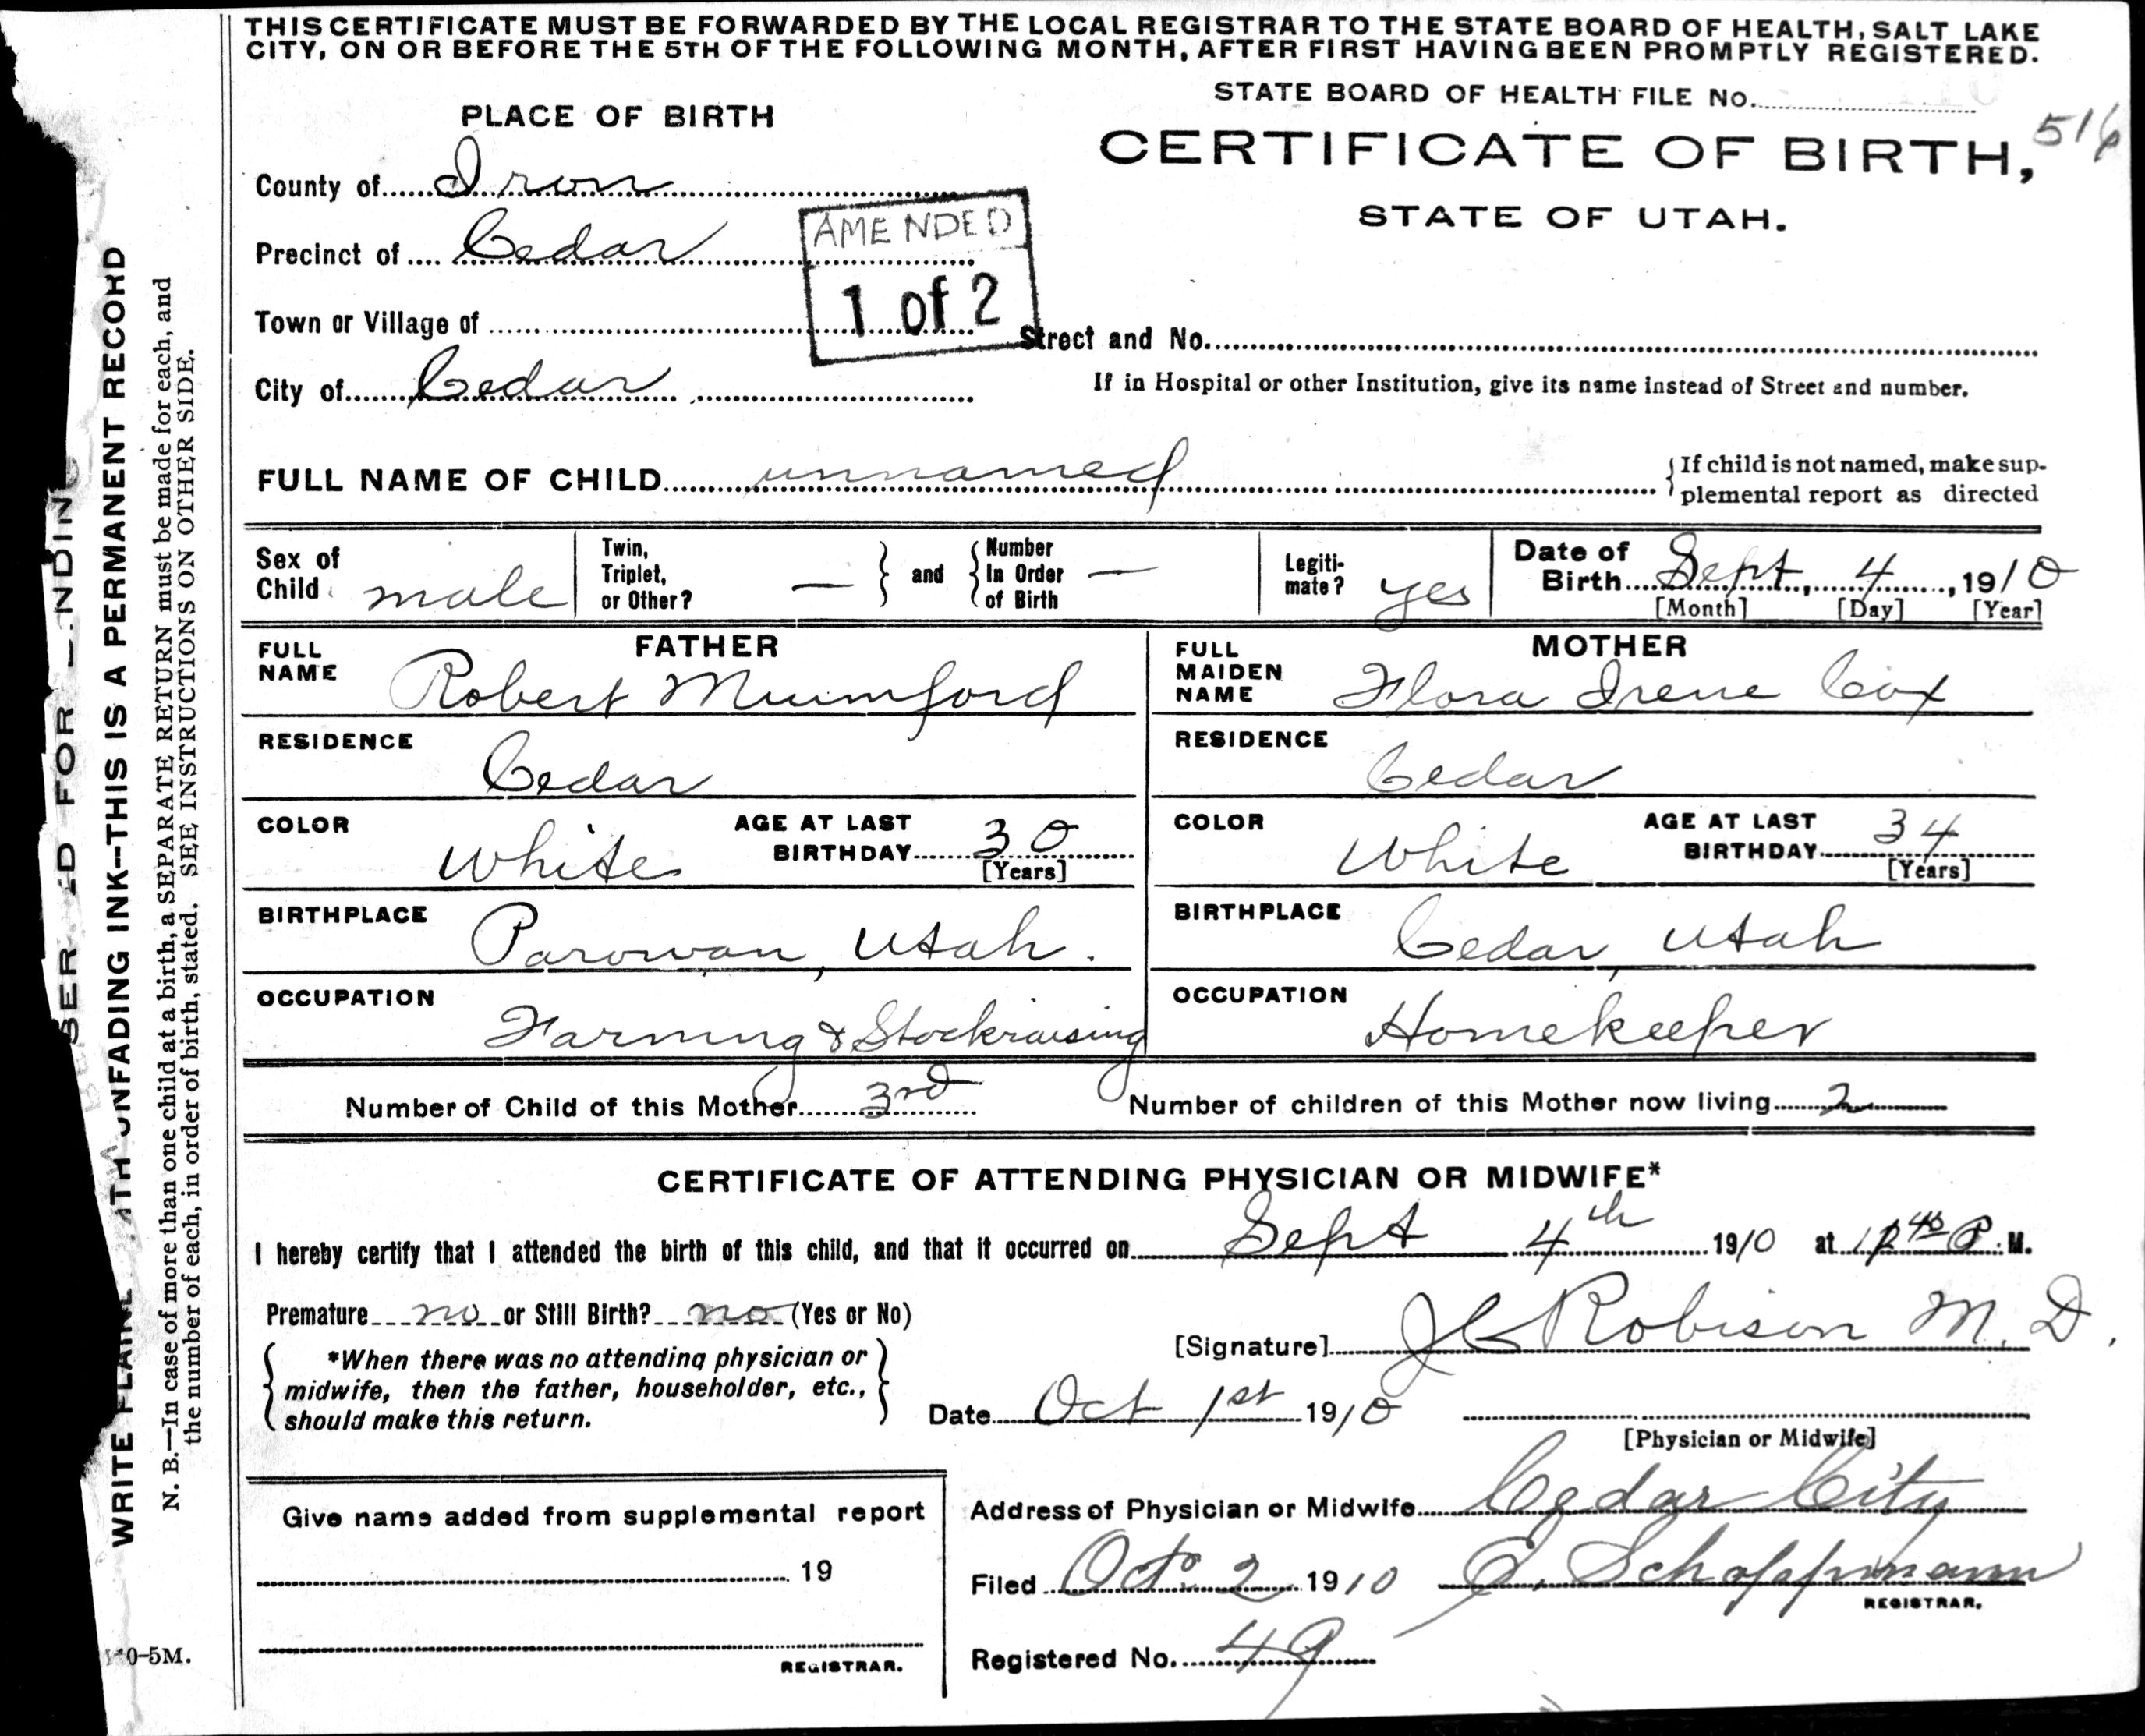 THIS CERTIFICATE MUST BE FORWARDED BY THE LOCAL REGISTRAR TO THE STATE BOARD OF HEALTH, SALT LAKE
CITY, ON OR BEFORE THE 5TH OF THE FOLLOWING MONTH, AFTER FIRST HAVING BEEN PROMPTLY REGISTERED.
STATE BOARD OF HEALTH FILE No.
516
PLACE OF BIRTH
CERTIFICATE OF BIRTH,
STATE OF UTAH.
County of Iron
Precinct of Cedar
AMENDED
1 of 2
Town or Village of
Street and No.
City of Cedar
If in Hospital or other Institution, give its name instead of Street and number.
FULL NAME OF CHILD unnamed
If child is not named, make sup-
plemental report as directed
Sex of Child male
Twin, Triplet, or Other? —
and
Number In Order of Birth —
Legiti-
mate? yes
Date of Birth Sept, 4, 1910
[Month] [Day] [Year]
FATHER
FULL NAME Robert Mumford
RESIDENCE Cedar
COLOR White
AGE AT LAST BIRTHDAY 30
[Years]
BIRTHPLACE Parowan, Utah.
OCCUPATION Farming & Stockraising
MOTHER
FULL MAIDEN NAME Flora Irene Cox
RESIDENCE Cedar
COLOR White
AGE AT LAST BIRTHDAY 34
[Years]
BIRTHPLACE Cedar, Utah
OCCUPATION Homekeeper
Number of Child of this Mother 3rd
Number of children of this Mother now living 2
CERTIFICATE OF ATTENDING PHYSICIAN OR MIDWIFE*
I hereby certify that I attended the birth of this child, and that it occurred on Sept 4th 1910 at P. M.
Premature no or Still Birth? no (Yes or No)
*When there was no attending physician or
midwife, then the father, householder, etc.,
should make this return.
[Signature] Robison M. D.
Date Oct 1st 1910
[Physician or Midwife]
Give name added from supplemental report
19
REGISTRAR.
Address of Physician or Midwife Cedar City
Filed Oct. 2 1910 E. Schoppmann
REGISTRAR.
Registered No. 49
WRITE UNFADING INK--THIS IS A PERMANENT RECORD
N. B.—In case of more than one child at a birth, a SEPARATE RETURN must be made for each, and
the number of each, in order of birth, stated. SEE INSTRUCTIONS ON OTHER SIDE.
0-5M.